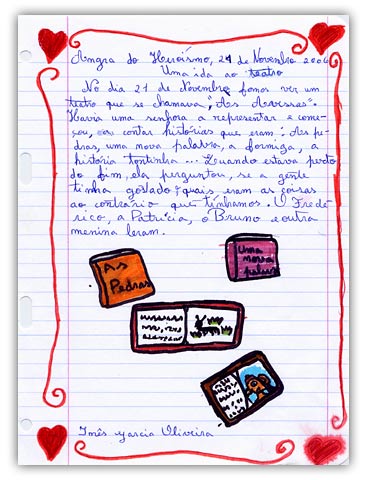 Angra do Heroísmo, 21 de Novembro 2006
Uma ida ao teatro
No dia 21 de Novembro fomos ver um
teatro que se chamava, "As Avessas".
Havia uma senhora a representar e come-
çou, a contar histórias que eram: As pe-
dras, uma nova palavra, a formiga, a
história tontinha ... Quando estava perto
do fim, ela perguntou, se a gente
tinha gostado e quais eram as coisas
ao contrário que tínhamos. O Frede-
rico, a Patrícia, o Bruno e outra
menina leram.
As
Pedras
Uma
nova
palavra
Inês Garcia Oliveira